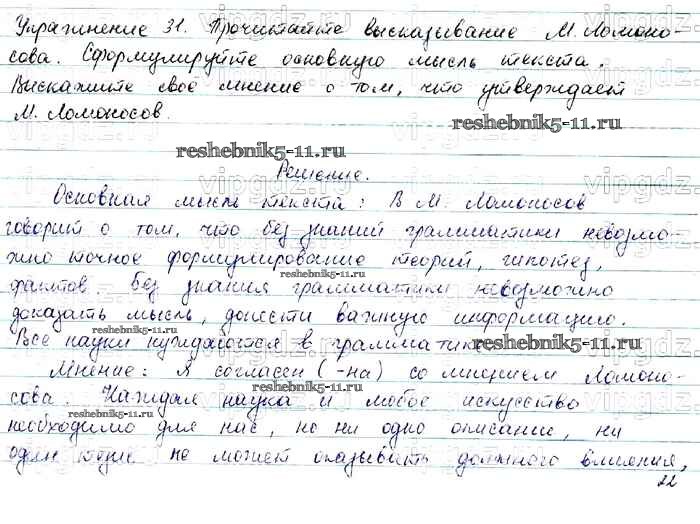 Упражнение 31. Прочитайте высказывание М. Ломоно-
сова. Сформулируйте основную мысль текста.
Выскажите своё мнение о том, что утверждает
М. Ломоносов.
reshebnik5-11.ru
reshebnik5-11.ru
Решение.
Основная мысль текста: В М. Ломоносов
говорит о том, что без знаний грамматики невозмо-
жно точное формулирование теорий, гипотез,
reshebnik5-11.ru
фактов без знания грамматики невозможно
доказать мысль, донести важную информацию.
reshebnik5-11.ru
Все науки нуждаются в грамматике
reshebnik5-11.ru
Мнение: Я согласен (-на) со мнением Ломоно-
reshebnik5-11.ru
сова. Каждая наука и любое искусство
reshebnik5-11.ru
необходимо для нас, но ни одно описание, ни
один не может оказывать должного влияния,
22